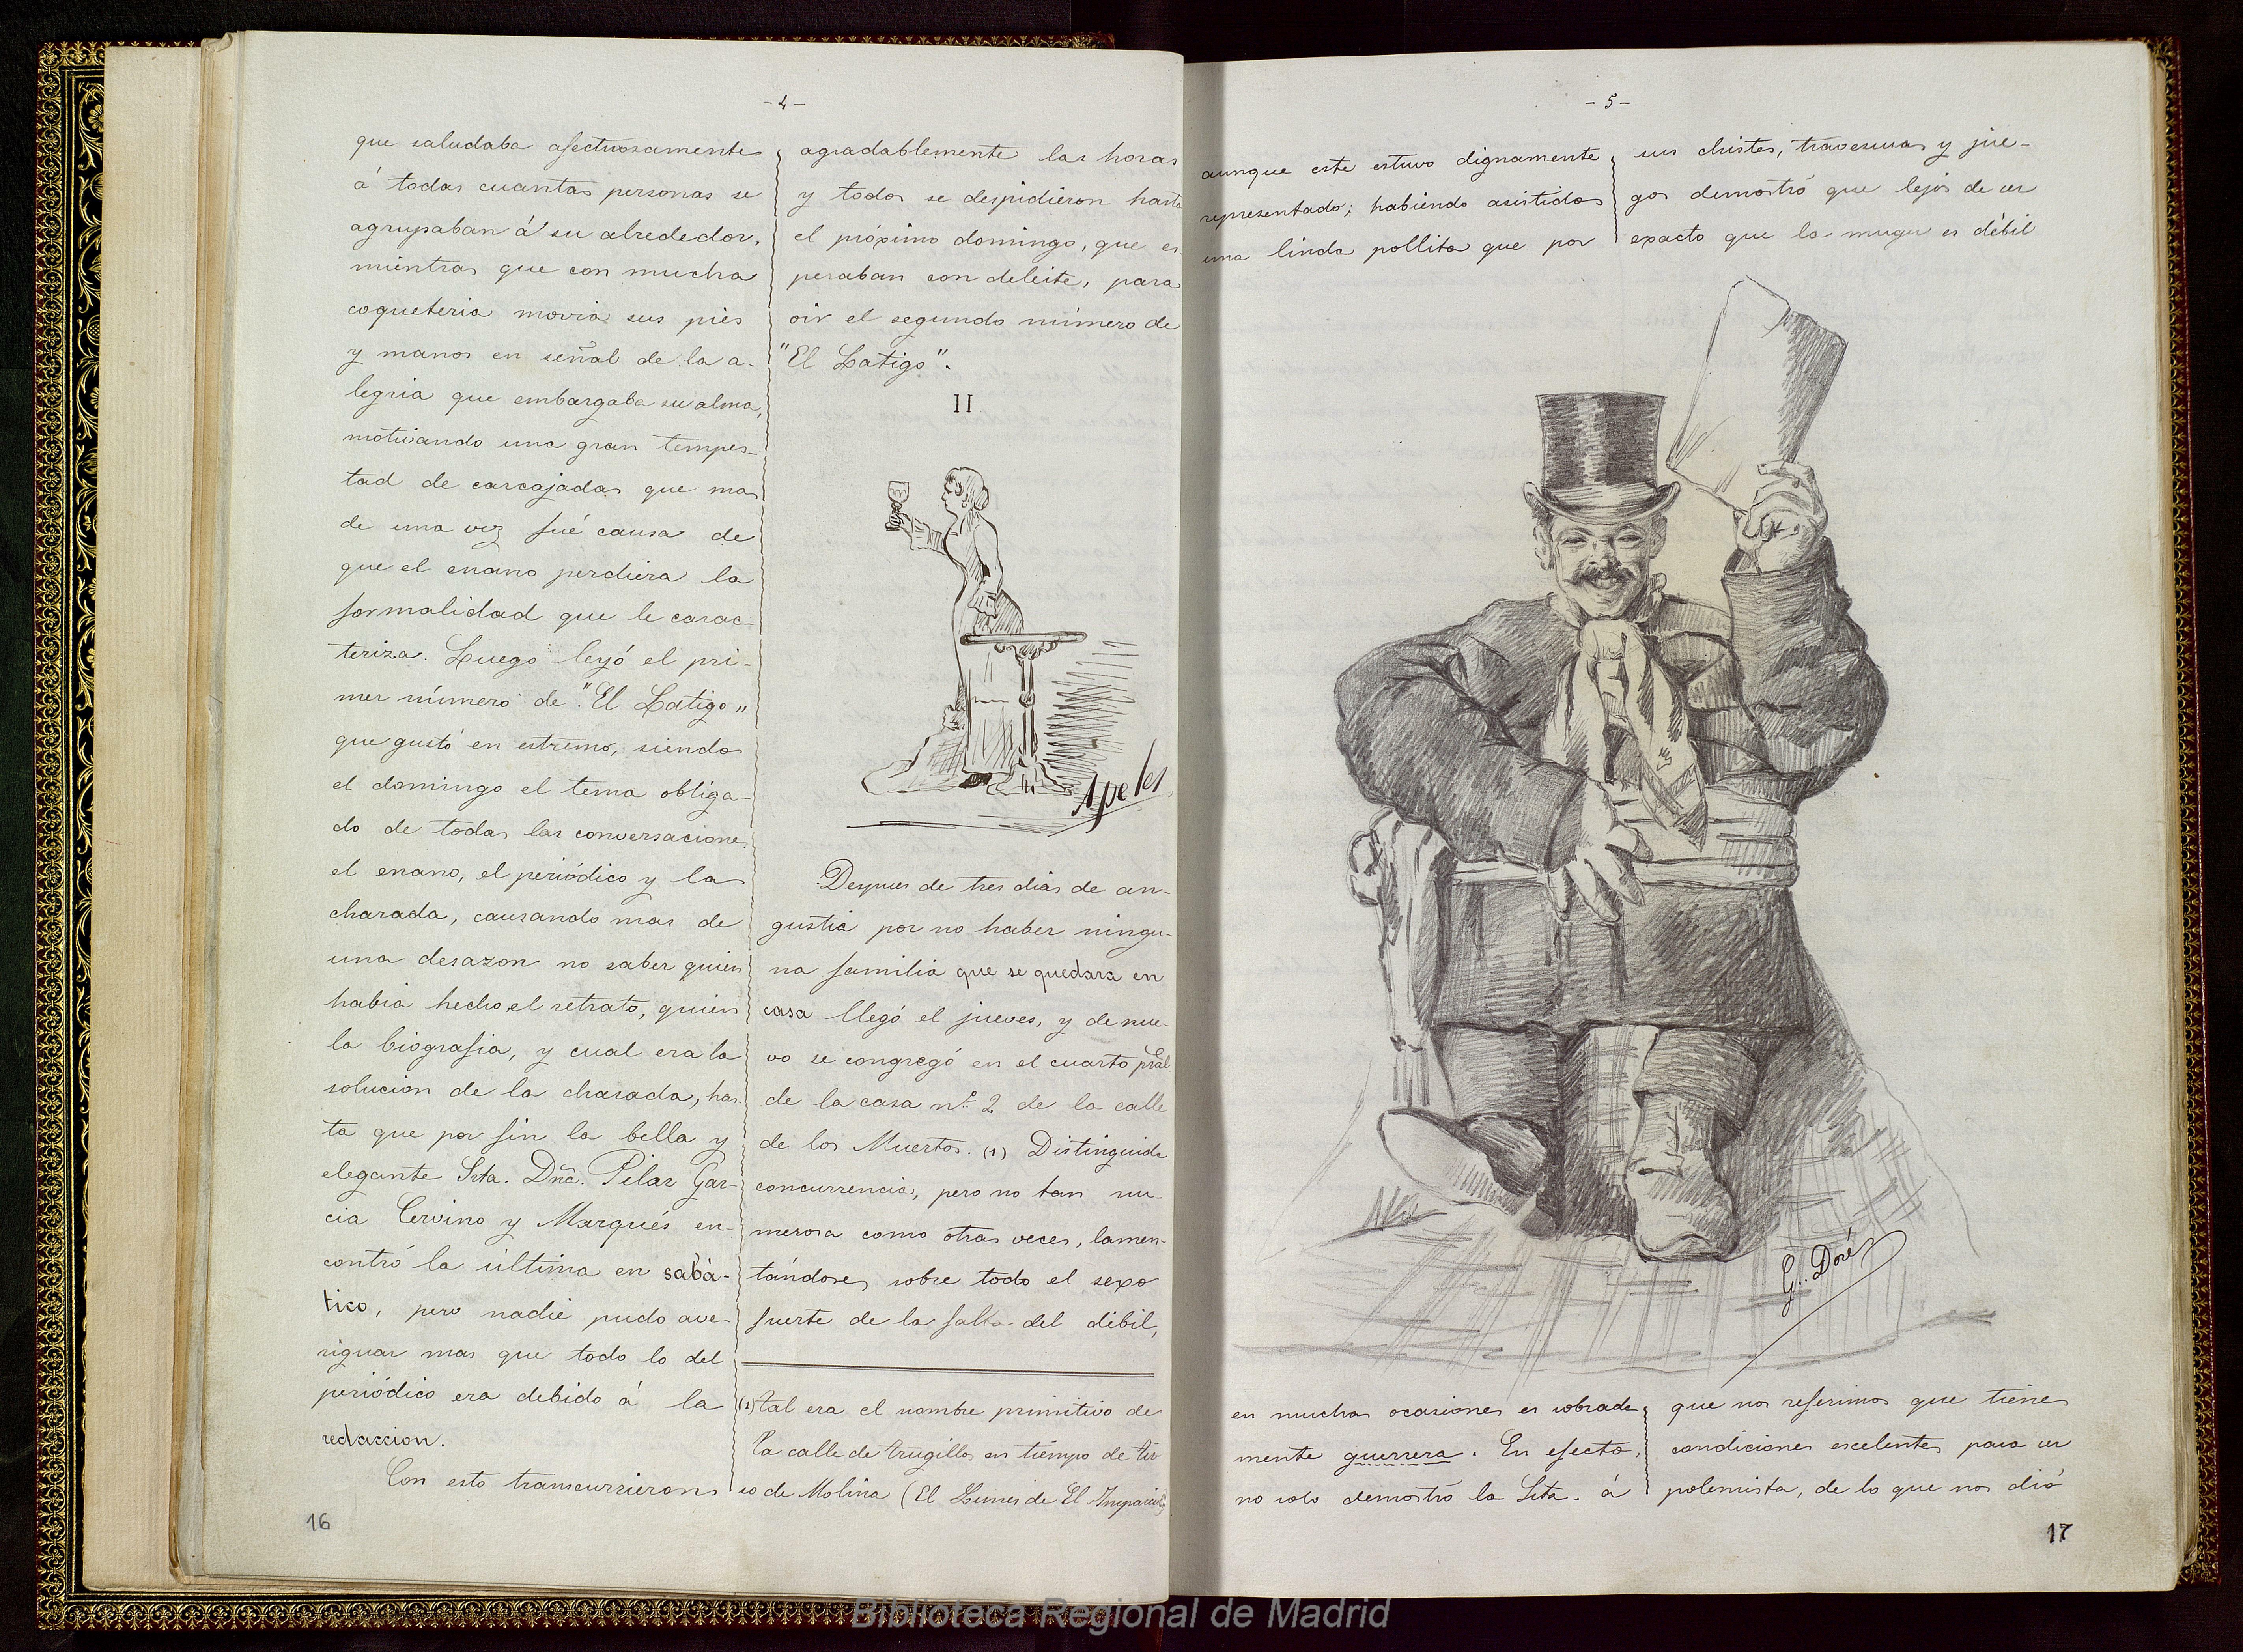 - 4 -
que saludaba afectuosamente
á todas cuantas personas se
agrupaban á su alrededor,
mientras que con mucha
coqueteria movia sus piés
y manos en señal de la a-
legria que embargaba su alma,
motivando una gran tempes-
tad de carcajadas que mas
de una vez fué causa de
que el enano perdiera la
formalidad que le carac-
teriza. Luego leyó el pri-
mer número de "El Latigo„
que gustó en estremo, siendo
el domingo el tema obliga-
do de todas las conversaciones
el enano, el periódico y la
charada, causando mas de
una desazon no saber quien
habia hecho el retrato, quien
la biografia, y cual era la
solucion de la charada, has
ta que por fin la bella y
elegante Srta. Dña. Pilar Gar-
cia Cervino y Marqués en-
contró la última en sabá-
tico, pero nadie pudo ave-
riguar mas que todo lo del
periódico era debido á la
redaccion.
Con esto transcurrieron
agradablemente las horas
y todos se despidieron hasta
el próximo domingo, que es
peraban con deleite, para
oir el segundo número de
"El Latigo".
II
Apeles
Despues de tres dias de an-
gustia por no haber ningu-
na familia que se quedara en
casa llegó el jueves, y de nue-
vo se congregó en el cuarto pral
de la casa nº 2 de la calle
de los Muertos. (1) Distinguida
concurrencia, pero no tan nu-
merosa como otras veces, lamen-
tándose, sobre todo el sexo
fuerte de la falta del débil,
(1) tal era el nombre primitivo de
la calle de Trugillos en tiempo de Tir
so de Molina (El Lunes de El Imparcial)
16
- 5 -
aunque este estuvo dignamente
representado; habiendo asistido
una linda pollita que por
sus chistes, travesuras y jue-
gos demostró que lejos de ser
exacto que la muger es débil
G. Doré
en muchas ocasiones es sobrada
mente guerrera. En efecto,
no solo demostró la Srta. á
que nos referimos que tiene
condiciones escelentes para ser
polemista, de lo que nos dió
17
Biblioteca Regional de Madrid